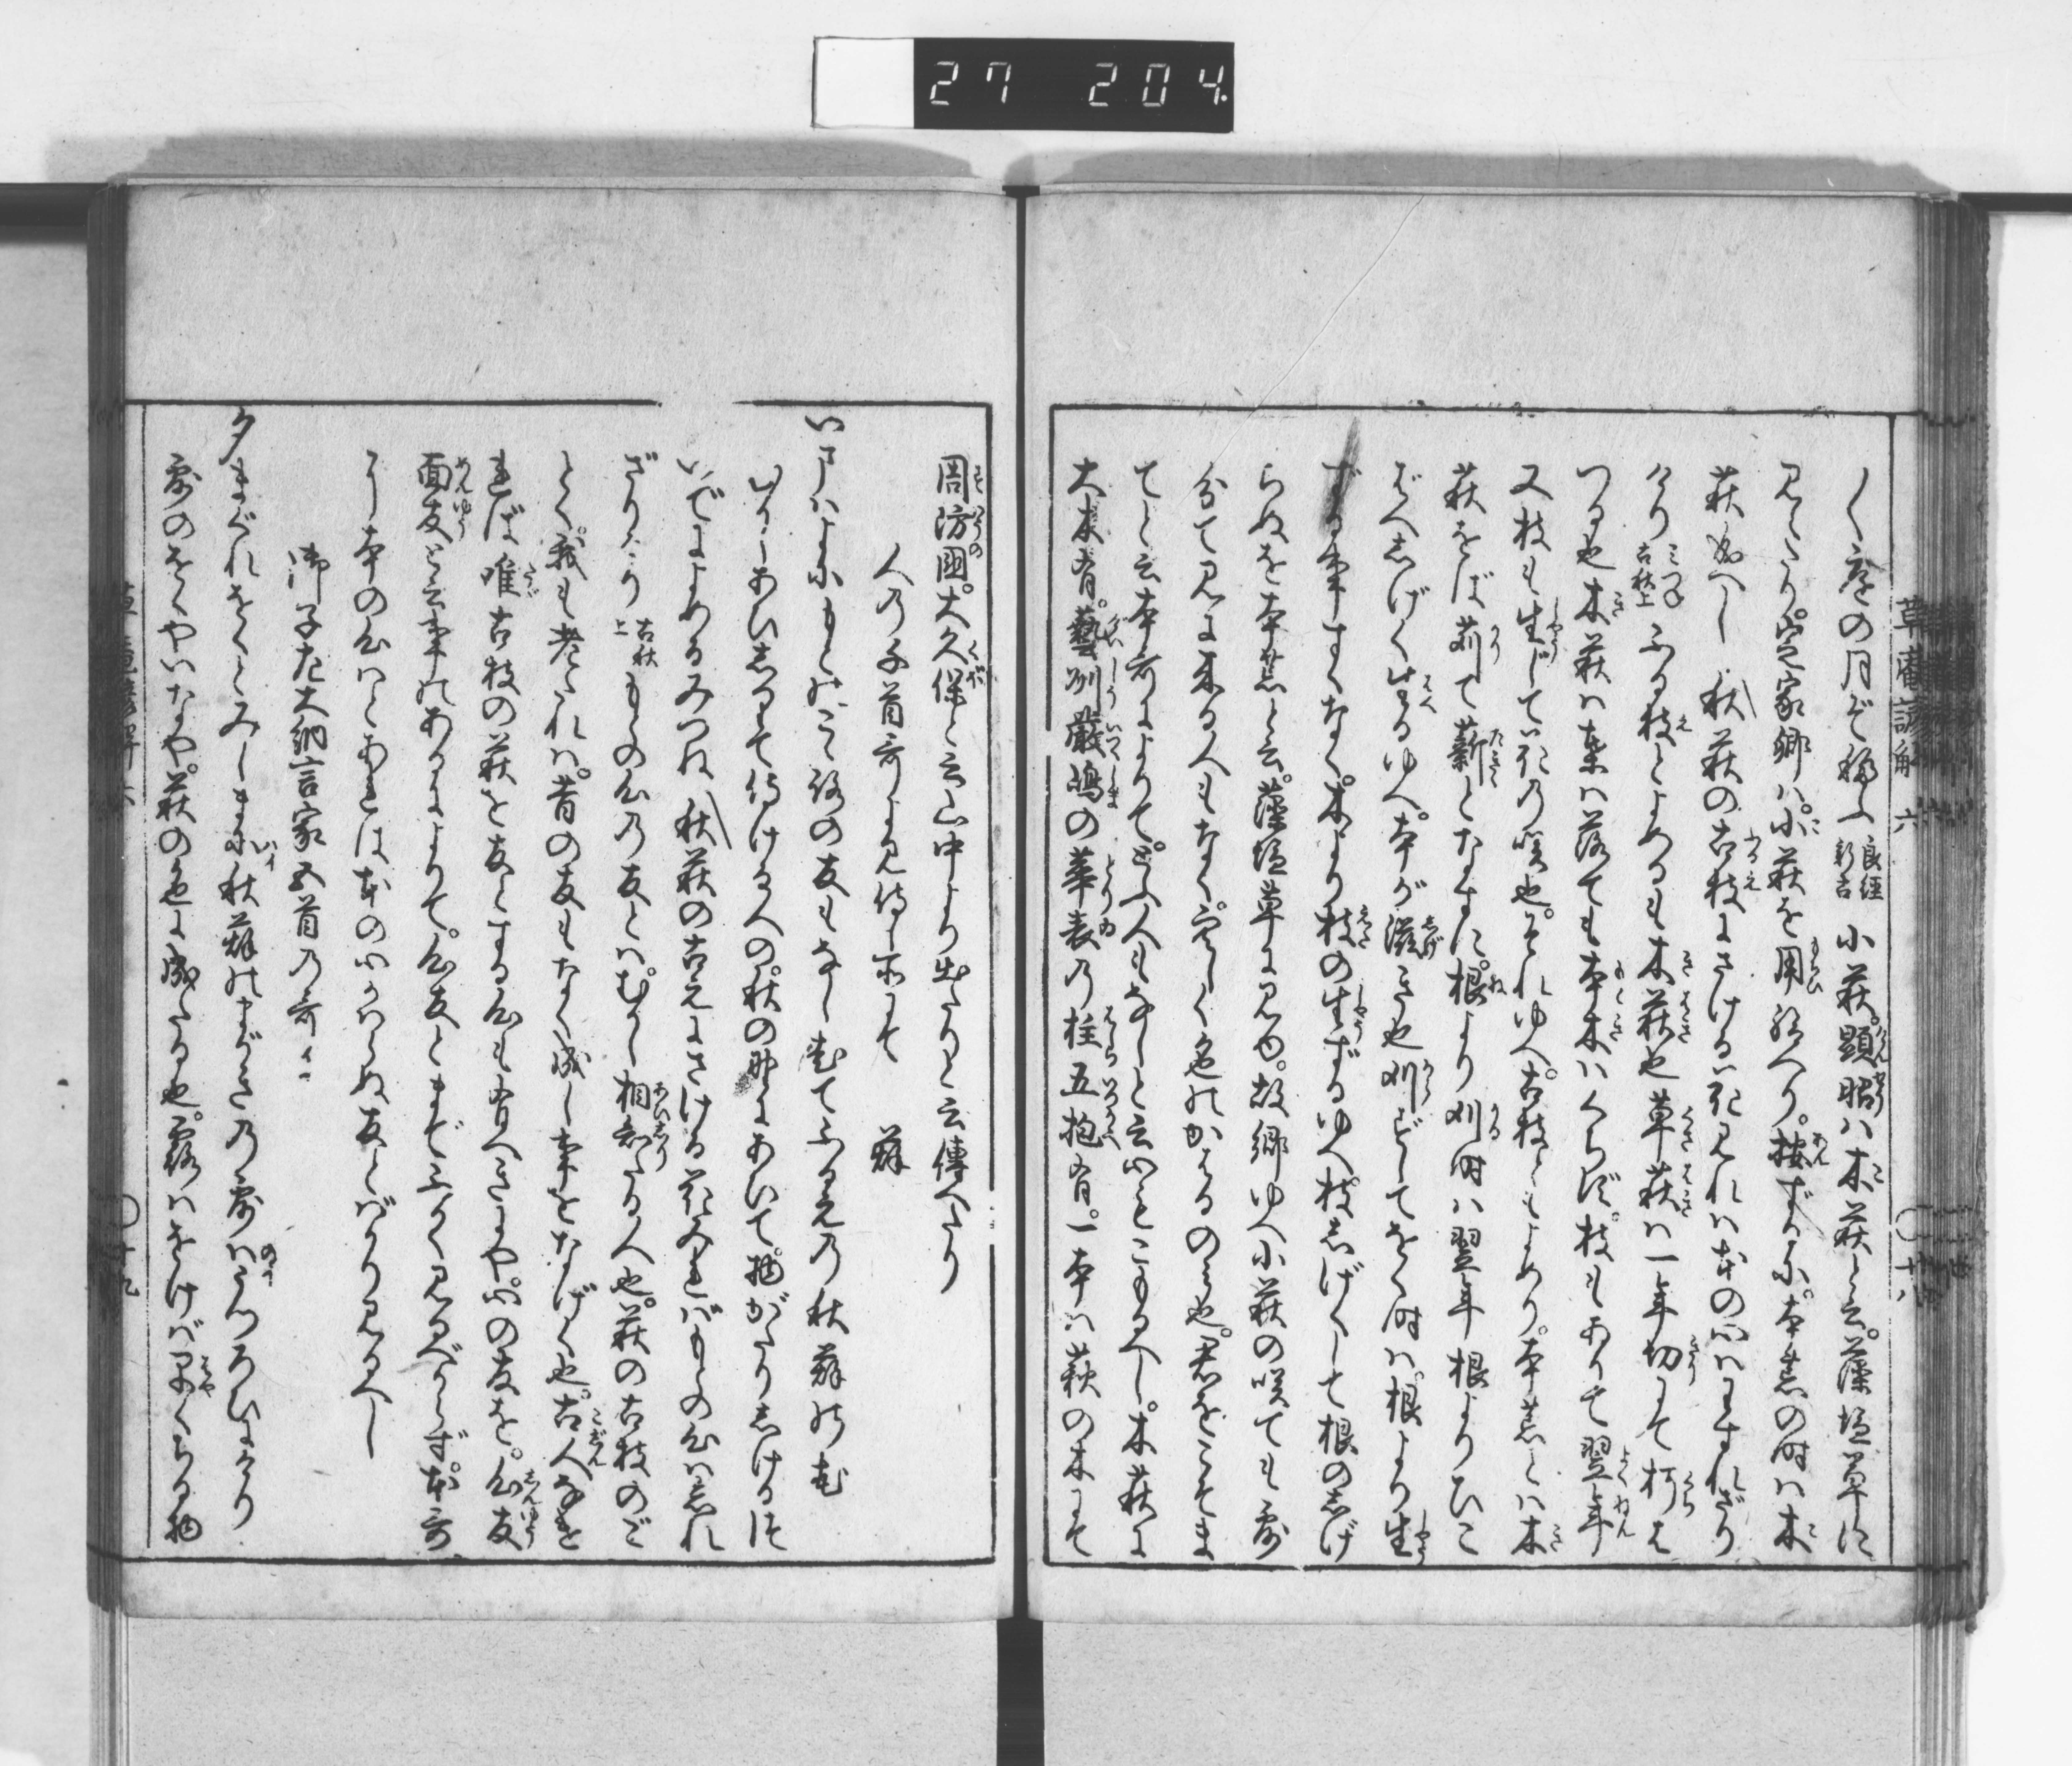 27 204.
草菴諺解 六 〇十八
し庭の月ぞ移ふ 良経 新古 小萩。顕昭ハ木萩と云。藻塩草に
見えたり。定家卿ハ。小萩を用給へり。按ずるに。本荒の時ハ木
萩成へし 秋萩の古枝にさける花見れハ本の心ハわすれざり
けり 古秋上 みつね ふる枝とよめるも木萩也草萩ハ一年切にて朽は
つる也木萩ハ葉ハ落ても本木ハくちず。枝もありて翌年
又枝も生じて花の咲也。それゆへ。古枝ともよめり。本荒とハ木
萩をば苅て薪となすに。根より刈時ハ翌年根よりひこ
ばへしげく生るゆへ。本が滋き也刈ずしてをく時ハ。根より生
ずる事すくなく。木より枝の生ずるゆへ枝しげくして根のしげ
らぬを本荒と云。藻塩草に見ゆ。故郷ゆへ小萩の咲ても露
分て見に来る人もなく。むなしく色のかはるのミ也。君をこそま
てと云本哥によりて。とふ人もなしと云心もこもるへし。木萩に
大木有。藝州厳嶋の華表の柱五抱有。一本ハ萩の木にて
周防國。大久保と云山中より出たりと云傳へたり
人の子首哥よみ侍し中にて 萩
いまハよにもとのこゝ路の友もなし老てふる元の秋萩の花
むかしあひしりて侍ける人の秋の野にあいて物がたりしけるつ
いでによめるみつね 秋萩の古えにさける花みればもとの心ハ忘れ
ざりけり 古秋上 もとの心の友とハむかし相知たる人也。萩の古枝のご
とく我も老たれハ。昔の友もなく成し事をなげく也。古人なけ
れば唯古枝の萩を友とする心も有へきにや。心の友を。心友
面友と云事のあるによりて。心友とまでふかく見るべからず。本哥
にし本の心ハとあれは本の心かハらぬ友とばかり見るへし
御子左大納言家五首の哥に
夕まぐれをくとみしまに秋萩のすがきの露ハうつろひにけり
露のをくやいなや。萩の色に成たる也。露ハをけば早くちる物